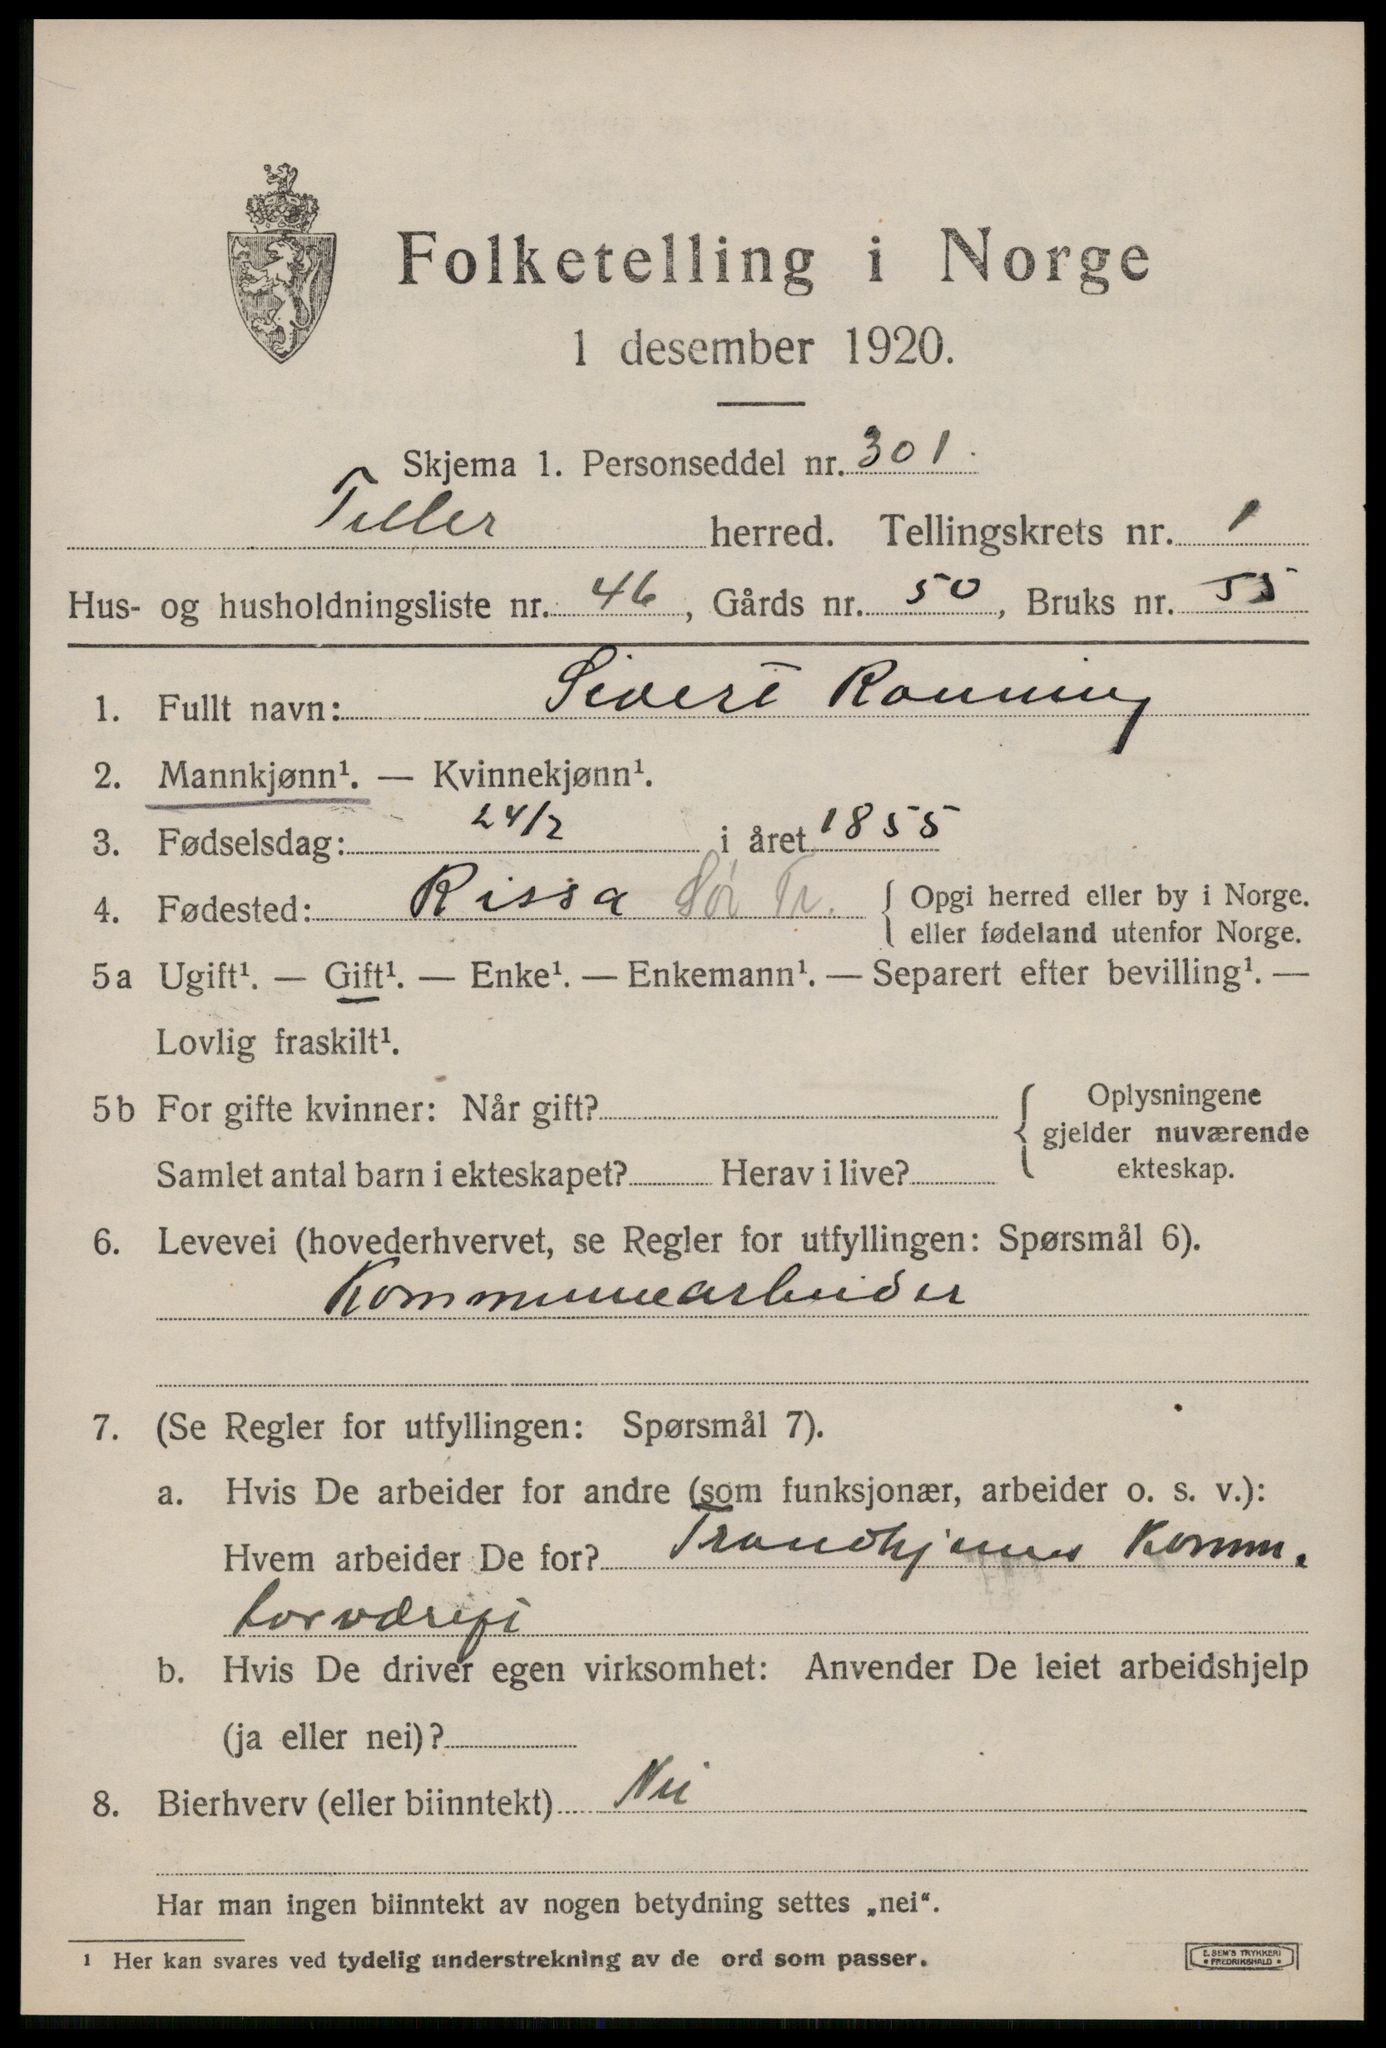 Folketelling i Norge
1 desember 1920.
Skjema 1. Personseddel nr. 301.
Tiller herred. Tellingskrets nr. 1
Hus- og husholdningsliste nr. 46, Gårds nr. 50, Bruks nr. 55
1. Fullt navn: Sivert Rønning
2. Mannkjønn¹. — Kvinnekjønn¹.
3. Fødselsdag: 24/2 i året 1855
4. Fødested: Rissa Sør Tr. { Opgi herred eller by i Norge.
eller fødeland utenfor Norge.
5a Ugift¹. — Gift¹. — Enke¹. — Enkemann¹. — Separert efter bevilling¹. —
Lovlig fraskilt¹.
5b For gifte kvinner: Når gift?
Samlet antal barn i ekteskapet? Herav i live?
Oplysningene
gjelder nuværende
ekteskap.
6. Levevei (hovederhvervet, se Regler for utfyllingen: Spørsmål 6).
Kommunearbeider
7. (Se Regler for utfyllingen: Spørsmål 7).
a. Hvis De arbeider for andre (som funksjonær, arbeider o. s. v.):
Hvem arbeider De for? Trondhjems Komm.
torvdrift
b. Hvis De driver egen virksomhet: Anvender De leiet arbeidshjelp
(ja eller nei)?
8. Bierhverv (eller biinntekt) Nei
Har man ingen biinntekt av nogen betydning settes „nei“.
¹ Her kan svares ved tydelig understrekning av de ord som passer.
E. SEM'S TRYKKERI
• FREDRIKSHALD •